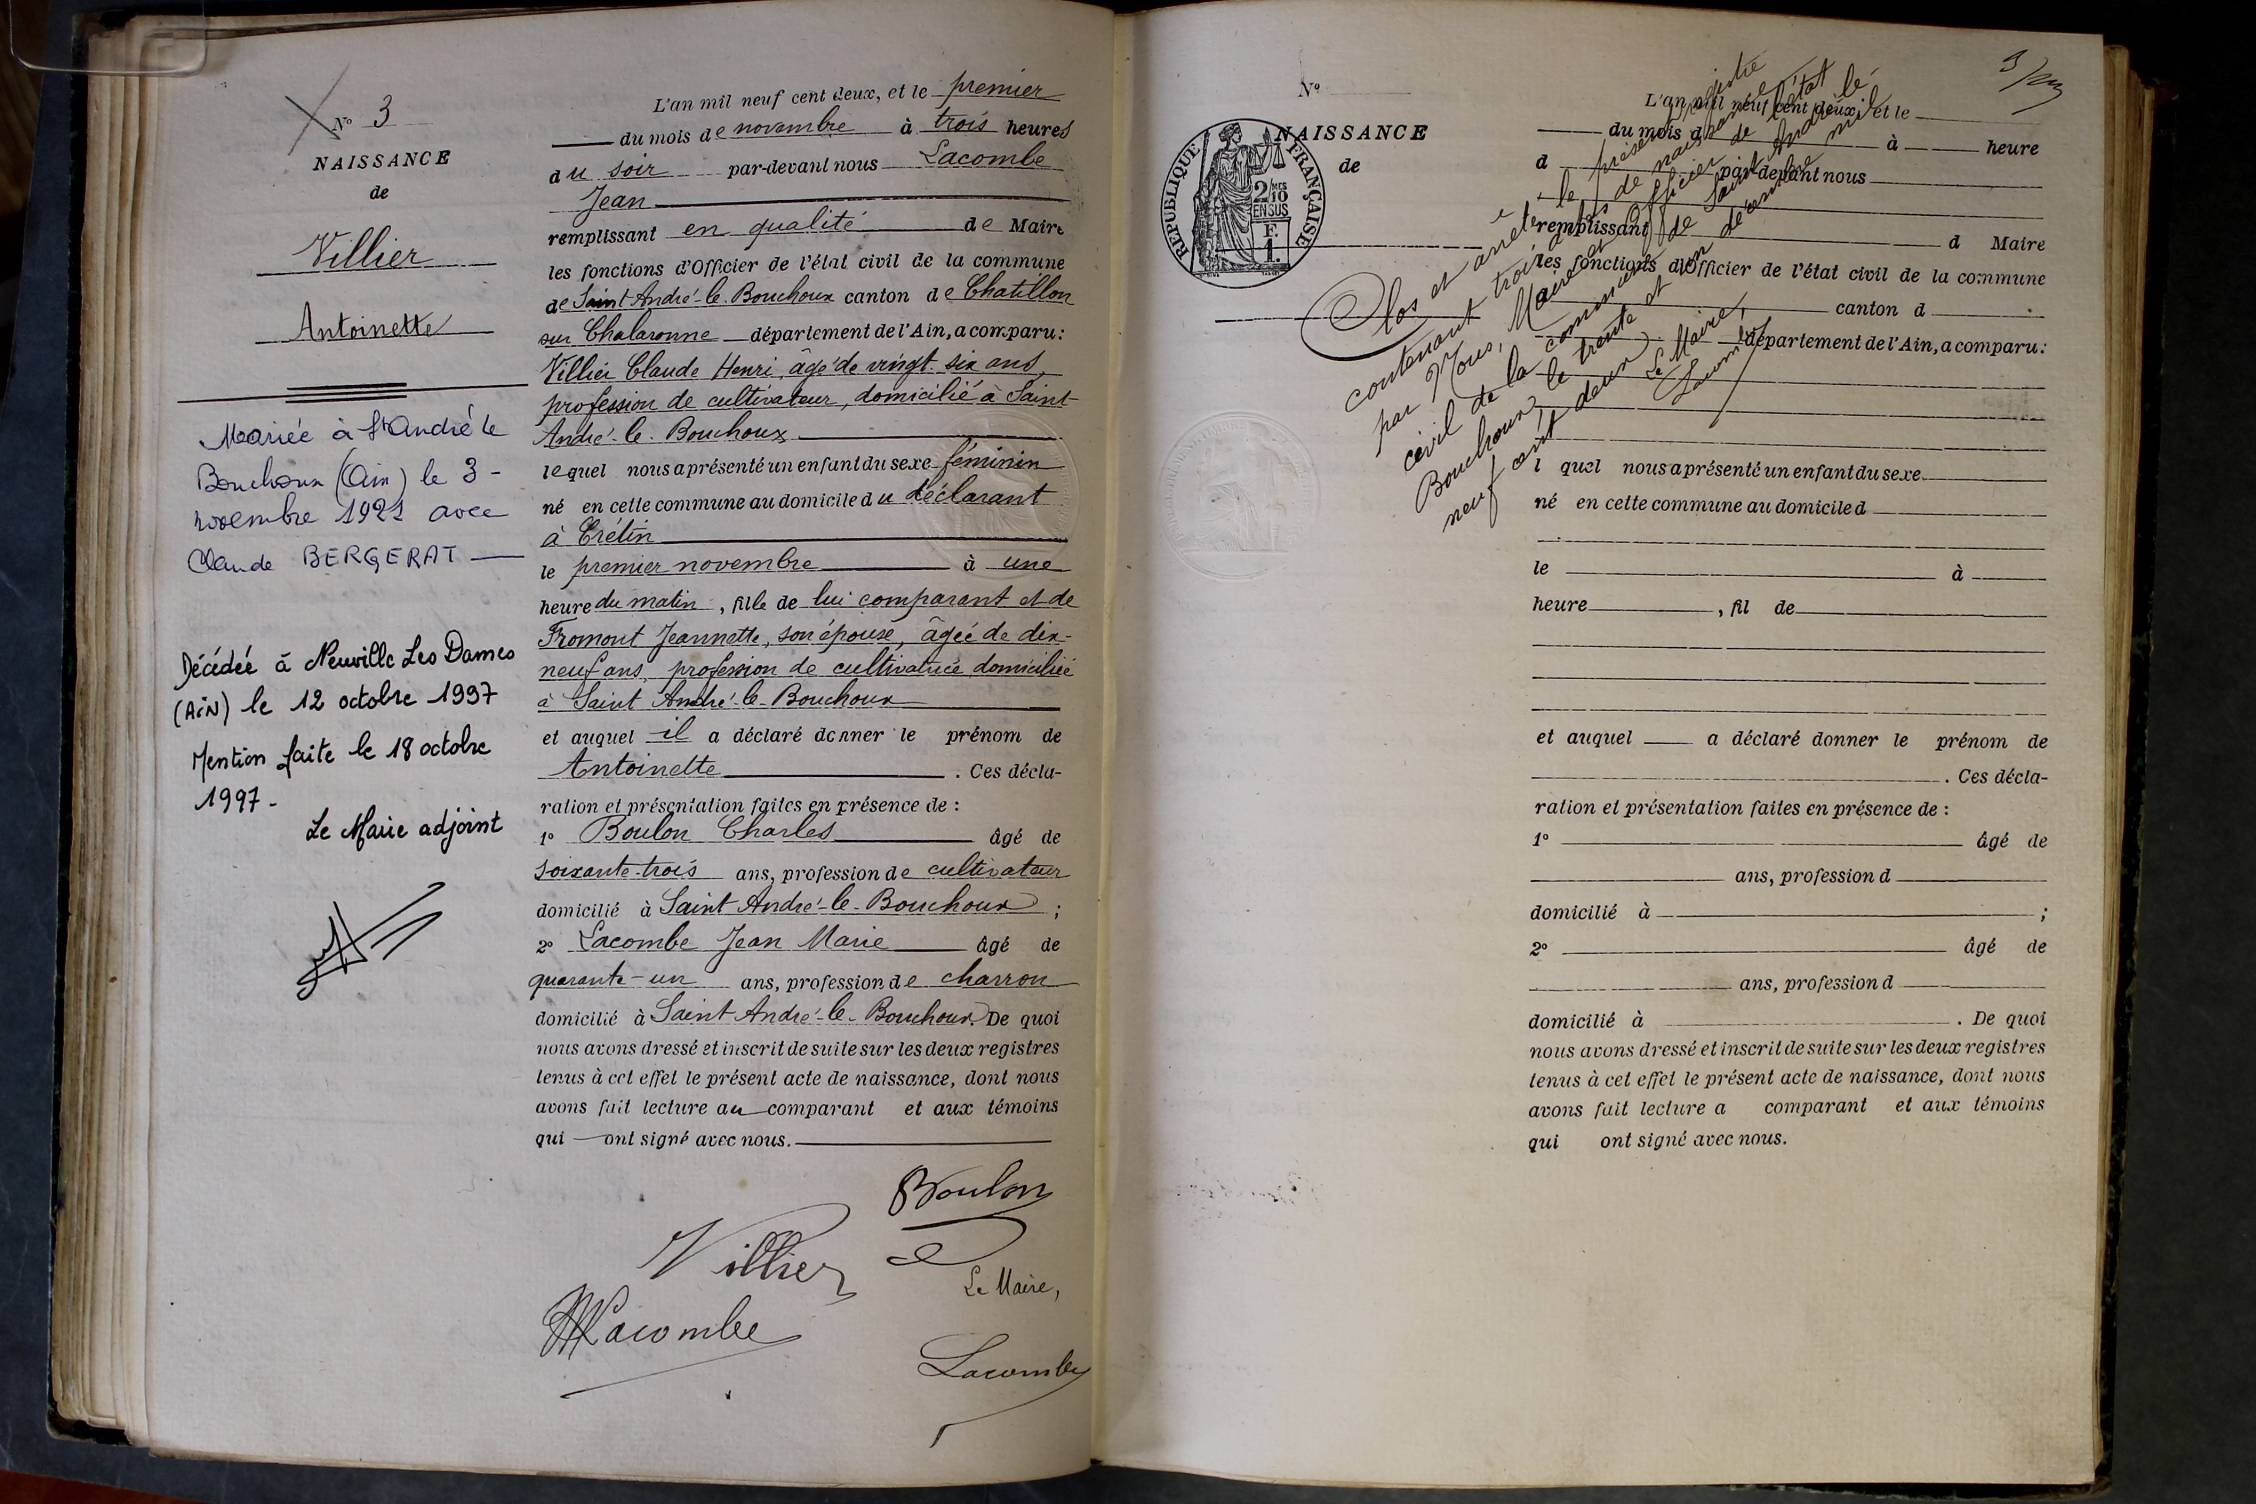 N° 3
NAISSANCE
de
Villier
Antoinette
Mariée à St André le
Bouchoux (Ain) le 3 -
novembre 1921 avec
Claude BERGERAT
Décédée à Neuville Les Dames
(AIN) le 12 octobre 1997
Mention faite le 18 octobre
1997 -
Le Maire adjoint
L'an mil neuf cent deux, et le premier
du mois de novembre à trois heures
du soir par-devant nous Lacombe
Jean
remplissant en qualité de Maire
les fonctions d'Officier de l'état civil de la commune
de Saint André-le-Bouchoux canton de Chatillon
sur Chalaronne département de l'Ain, a comparu:
Villier Claude Henri, âgé de vingt-six ans,
profession de cultivateur, domicilié à Saint
André-le-Bouchoux
lequel nous a présenté un enfant du sexe féminin
né en cette commune au domicile du déclarant
à Crétin
le premier novembre à une
heure du matin, fille de lui comparant et de
Fromont Jeannette, son épouse, âgée de dix-
neuf ans, profession de cultivatrice domiciliée
à Saint André-le-Bouchoux
et auquel il a déclaré donner le prénom de
Antoinette. Ces décla-
ration et présentation faites en présence de :
1° Boulon Charles âgé de
soixante-trois ans, profession de cultivateur
domicilié à Saint André-le-Bouchoux ;
2° Lacombe Jean Marie âgé de
quarante-un ans, profession de charron
domicilié à Saint André-le-Bouchoux. De quoi
nous avons dressé et inscrit de suite sur les deux registres
tenus à cet effet le présent acte de naissance, dont nous
avons fait lecture au comparant et aux témoins
qui ont signé avec nous.
Boulon
Villier
Le Maire,
Lacombe
Lacombe
N°
NAISSANCE
de
RÉPUBLIQUE FRANÇAISE
2/10
EN SUS
F.
1.
L'an mil neuf cent deux, et le
du mois d à heure
d par-devant nous
remplissant d Maire
les fonctions d'Officier de l'état civil de la commune
canton d
département de l'Ain, a comparu:
Clos et arrêté le présent registre
contenant trois actes de naissance
par Nous, Maire et Officier de l'état
civil de la commune de Saint André-le-
Bouchoux, le trente et un décembre mil
neuf cent deux
Le Maire,
Lacombe
l quel nous a présenté un enfant du sexe
né en cette commune au domicile d
le à
heure , fil de
et auquel a déclaré donner le prénom de
. Ces décla-
ration et présentation faites en présence de :
1° âgé de
ans, profession d
domicilié à ;
2° âgé de
ans, profession d
domicilié à . De quoi
nous avons dressé et inscrit de suite sur les deux registres
tenus à cet effet le présent acte de naissance, dont nous
avons fait lecture a comparant et aux témoins
qui ont signé avec nous.